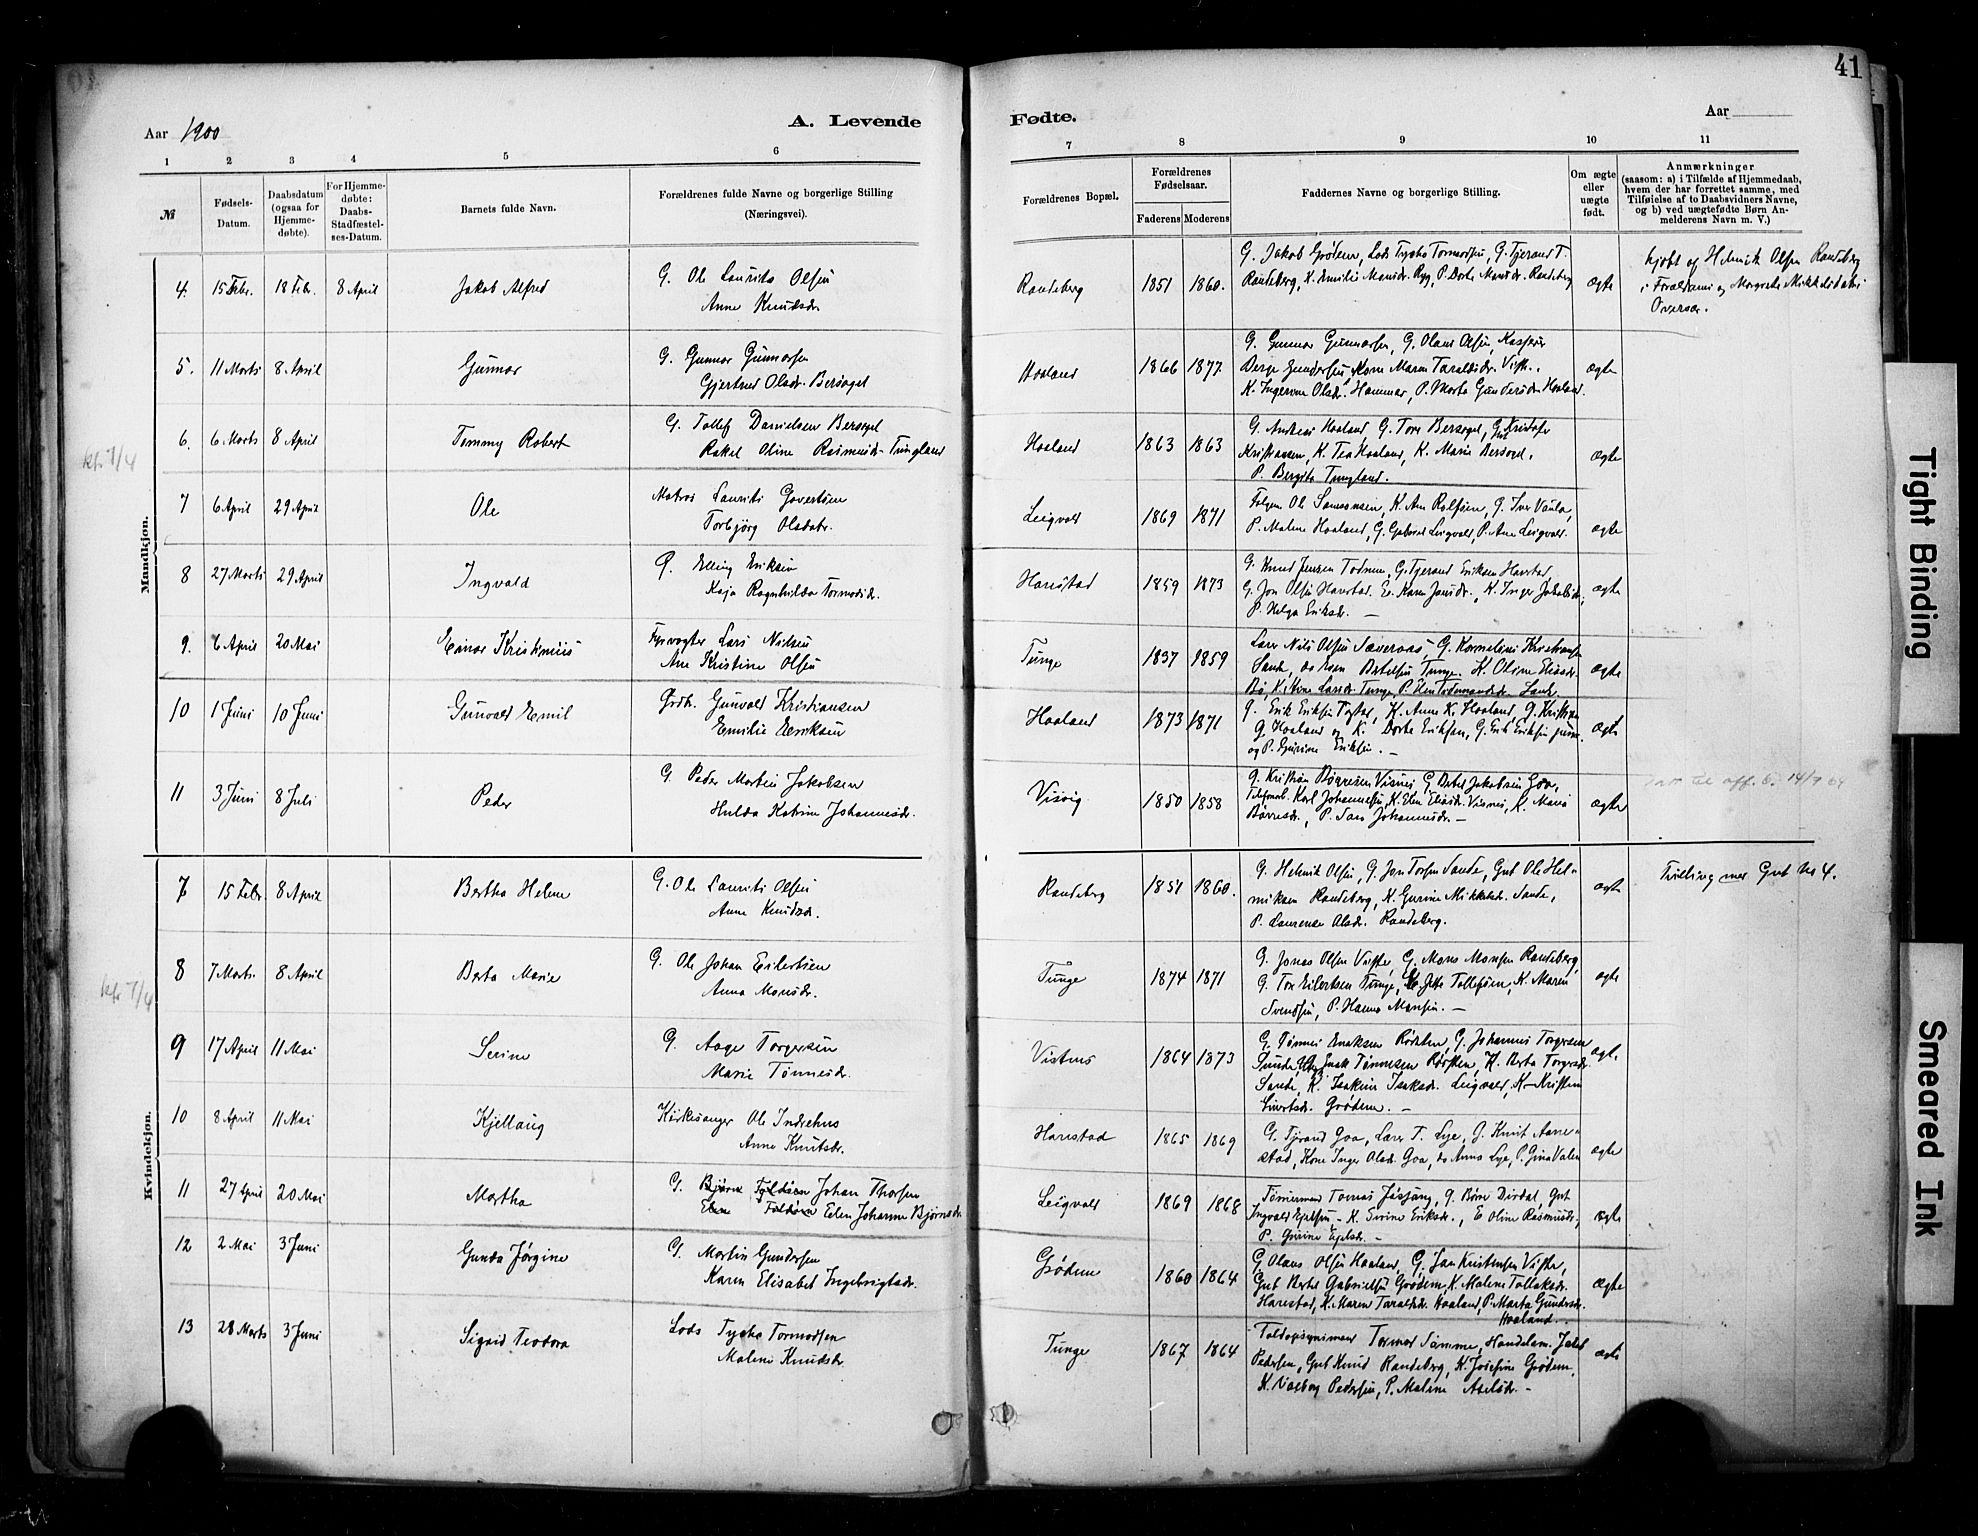 41
Aar 1900
A. Levende
Fødte.
Aar
1 2 3 4 5 6 7 8 9 10 11
№
Fødsels-
Datum.
Daabsdatum
(ogsaa for
Hjemme-
døbte).
For Hjemme-
døbte:
Daabs-
Stadfæstel-
ses-Datum.
Barnets fulde Navn.
Forældrenes fulde Navne og borgerlige Stilling
(Næringsvei).
Forældrenes Bopæl.
Forældrenes
Fødselsaar.
Faderens Moderens
Faddernes Navne og borgerlige Stilling.
Om ægte
eller
uægte
født.
Anmærkninger
(saasom: a) i Tilfælde af Hjemmedaab,
hvem der har forrettet samme, med
Tilføielse af to Daabsvidners Navne,
og b) ved uægtefødte Børn An-
melderens Navn m. V.)
Mandkjøn.
4. 15 Febr. 18 Febr. 8 April Jakob Alfred
G. Ole Laurits Olsen
Anne Knutsdr.
Randeberg 1851 1860.
G. Jakob Grødem, Lods Tycho Tormodsen, G. Tjerand T.
Randeberg, K. Emilie Monsdr. Ryg, P. Dorte Monsdr. Randeberg
ægte
hjdbt af Helmik Olsen Randeberg
i Forældrenes og Margrete Mikkelsdatters
Overvær.
5. 11 Marts 8 April Gunnar
G. Gunnar Gunnarsen
Gjertrud Olsdr. Bersagel
Haaland 1866 1877
G. Gunnar Gunnarsen, G. Olaus Olsen, Kasserer
Berge Gundersen, Kone Maren Taraldsdr. Viste,
K. Ingeranna Olsdr. Hammer, P. Marta Gundersdr. Haaland.
ægte
6. 6 Marts 8 April Tommy Robert
G. Tollef Danielsen Bersagel
Rakel Oline Rasmusdr. Tungland
Haaland 1863 1863
G. Andreas Haaland, G. Tore Bersagel, Gut Kristofer
Kristiansen, K. Tea Haaland, K. Marie Bersagel,
P. Bergita Tungland.
ægte
kfr 7/4
7 6 April 29 April Ole
Matros Laurits Govertsen
Torbjørg Olsdatr.
Leigvold 1869 1871
Ole Samsonsen, K. Ane Rolfsen, G. Iver Vaula,
P. Malene Haaland, G. Gabriel Leigvold, P. Ane Leigvold.
ægte
8 27 Marts 29 April Ingvald
G. Elling Eriksen
Kaja Ragnhilda Tormodsdr.
Harestad 1859 1873
G. Knud Jensen Todnem, G. Tjerand Eriksen Harestad,
G. Jon Olsen Harestad. E. Karen Jonsdr., K. Inger Jakobsdr.,
P. Helga Eriksdr. —
ægte
9. 6 April 20 Mai Einar Kristinius
Fyrvogter Lars Nilsen
Ane Kristine Olsen
Tunge 1837 1859
Lærer Nils Olsen Sæveraas, G. Kornelius Kristiansen
Sande, do Sven Bertelsen Tunge. K. Oline Eliasdr.
Bø, K. Stine Larsdr. Tunge, P. Elen Sande.
ægte
10 1 Juni 10 Juni Gunvald Emil
Grdb. Gunvald Kristiansen
Emilie Eriksen
Haaland 1873 1871
G. Erik Eriksen K. Anne K. Haaland, G. Kristian
G. Haaland og K. Dorte Eriksen, G. Erik Eriksen junr.
og P. Gurine Eriksen. —
ægte
11 3 Juni 8 Juli Peder
G. Peder Martin Jakobsen
Hulda Katrine Johannesdr.
Visvig 1850 1858
G. Kristian Børresen Visnes, G. Bertel Jakobsen Goa,
Karl Johannessen, K. Elen Eliasdr. Visnes, K. Marie
Børresdr., P. Sara Johannesdr. —
ægte
14/7 64
Kvindekjøn.
7 15 Febr. 8 April Bertha Helene
G. Ole Laurits Olsen
Anne Knudsdr.
Randeberg 1851 1860.
G. Helmik Olsen, G. Jon Torsen Sande, Gut Ole Hel-
miksen Randeberg, K. Gurine Mikkelsdr. Sande,
P. Laurense Olsdr. Randeberg.
ægte
Tvilling med Gut No 4.
8 7 Marts 8 April Berta Marie
G. Ole Johan Eilertsen
Anna Monsdr.
Tunge 1874 1871
G. Jonas Olsen Viste, G. Mons Monsen Randeberg,
G. Tore Eilertsen Tunge, K. Jette Tollefsen, K. Maren
Svendsen, P. Hanna Monsen. —
ægte
kfr 7/4
9 17 April 11 Mai Serine
G. Aage Torgersen
Marie Tønnesdr.
Vistnes 1864 1873
G. Tønnes Enoksen Grødem, G. Johannes Torgersen
Sunde, Enok Tønnesen K. Berta Torgersdr.
Sande, K. Isaksdr. Leigvold, K. Kristine
Sivertsdr. Grødem. —
ægte
10 8 April 11 Mai Kjellaug
Kirkesanger Ole Indrehus
Anne Knutsdr.
Harestad 1865 1869
G. Tjerand Goa, Lærer T. Lye, G. Knut Aare-
stad, Kone Inger Olsdr. Goa, do Anna Lye, P. Gina Valen
ægte
11 27 April 20 Mai Martha
G. Johan Thorsen
Elen Johanne Bjørnsdr.
Leigvold 1869 1868
Tømmermand Tomas Jåsjang, G. Børe Dirdal, Gut
Ingvald Egelsen, K. Serine Eriksdr., E. Oline Rasmusdr.,
P. Gurine Egelsdr. —
ægte
12 2 Mai 3 Juni Gunda Jørgine
G. Martin Gundersen
Karen Elisabet Ingebrigtsdr.
Grødem 1860 1864
G. Olaus Olsen Haaland, G. Jan Kristensen Viste,
Gut Bertel Gabrielsen Grødem, K. Malene Tollaksdr.
Harestad, K. Maren Taraldsdr. Haaland, P. Marta Gundersdr.
Haaland.
ægte
13 28 Marts 3 Juni Sigrid Teodora
Lods Tycho Tormodsen
Malene Knudsdr.
Tunge 1867 1864
Toldopsynsmand Tormod Sømme, Handelsm. Jakob
Pedersen, Gut Knud Randeberg, K. Josefine Grødem,
K. Valborg Pedersen, P. Malene Axelsdr. —
ægte
Tight Binding
Smeared Ink